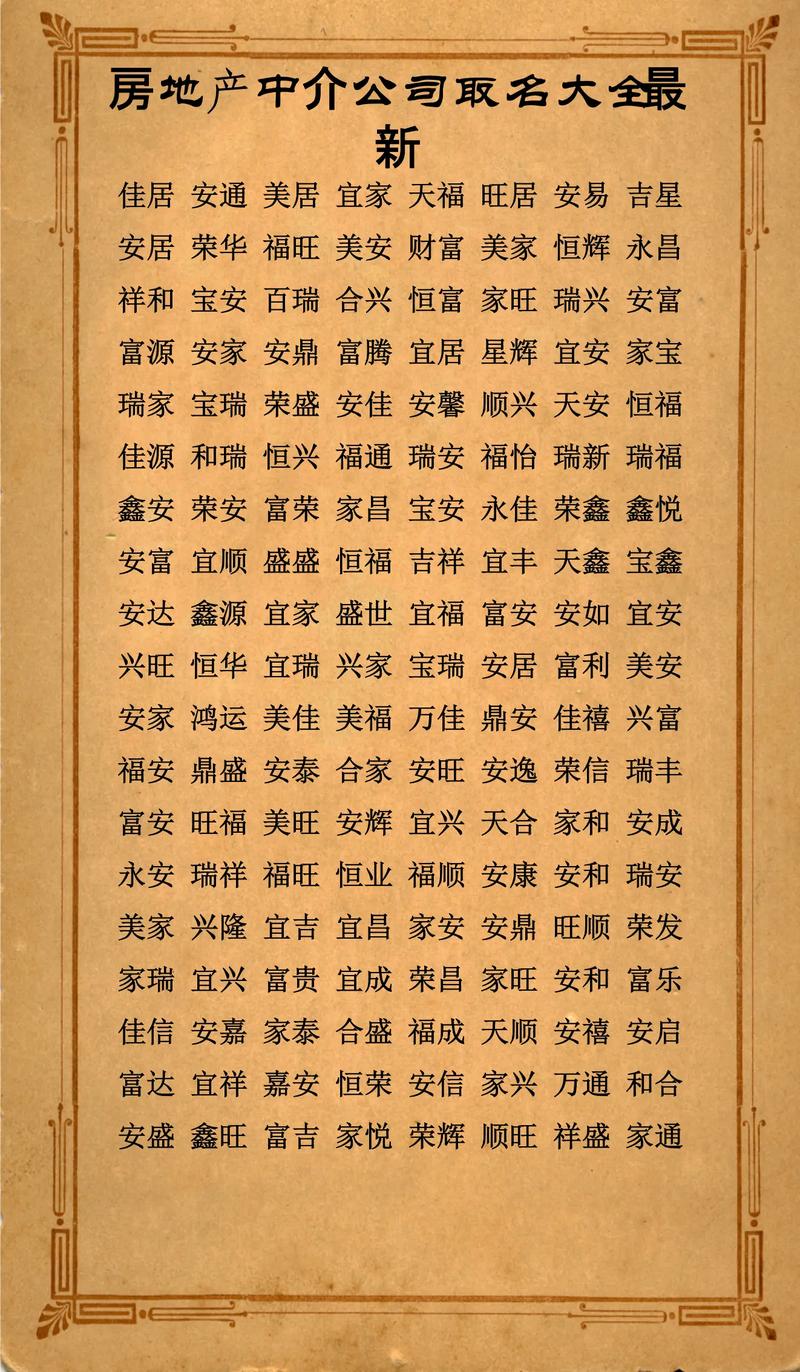 房地产中介公司取名大全最
新
佳居 安通 美居 宜家 天福 旺居 安易 吉星
安居 荣华 福旺 美安 财富 美家 恒辉 永昌
祥和 宝安 百瑞 合兴 恒富 家旺 瑞兴 安富
富源 安家 安鼎 富腾 宜居 星辉 宜安 家宝
瑞家 宝瑞 荣盛 安佳 安馨 顺兴 天安 恒福
佳源 和瑞 恒兴 福通 瑞安 福怡 瑞新 瑞福
鑫安 荣安 富荣 家昌 宝安 永佳 荣鑫 鑫悦
安富 宜顺 盛盛 恒福 吉祥 宜丰 天鑫 宝鑫
安达 鑫源 宜家 盛世 宜福 富安 安如 宜安
兴旺 恒华 宜瑞 兴家 宝瑞 安居 富利 美安
安家 鸿运 美佳 美福 万佳 鼎安 佳禧 兴富
福安 鼎盛 安泰 合家 安旺 安逸 荣信 瑞丰
富安 旺福 美旺 安辉 宜兴 天合 家和 安成
永安 瑞祥 福旺 恒业 福顺 安康 安和 瑞安
美家 兴隆 宜吉 宜昌 家安 安鼎 旺顺 荣发
家瑞 宜兴 富贵 宜成 荣昌 家旺 安和 富乐
佳信 安嘉 家泰 合盛 福成 天顺 安禧 安启
富达 宜祥 嘉安 恒荣 安信 家兴 万通 和合
安盛 鑫旺 富吉 家悦 荣辉 顺旺 祥盛 家通